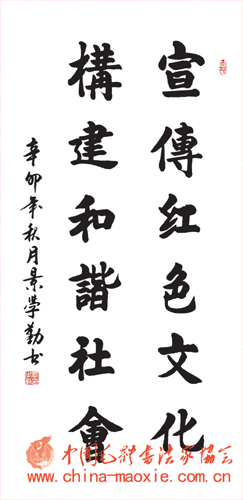 宣傳红色文化
構建和諧社會
辛卯年秋月景學勤书
中国毛体书法家协会
www.china-maoxie.com.cn